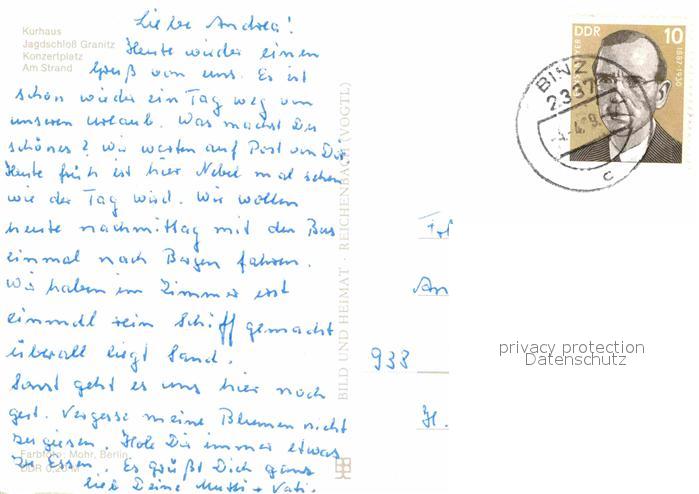 Kurhaus
Jagdschloß Granitz
Konzertplatz
Am Strand
Liebe Andrea!
Heute wieder einen
Gruß von uns. Es ist
schon wieder ein Tag weg von
unseren Urlaub. Was machst Du
schönes? Wir warten auf Post von Dir
Heute früh ist hier Nebel mal sehen
wie der Tag wird. Wir wollen
heute nachmittag mit den Bus
einmal nach Bergen fahren.
Wir haben im Zimmer erst
einmal rein Schiff gemacht
überall liegt Sand.
Sonst geht es uns hier noch
gut. Vergesse meine Blumen nicht
zu giesen. Hole Dir immer etwas
zu Essen. Es grüßt Dich ganz
lieb Deine Mutti + Vati.
Farbfoto: Mohr, Berlin
DDR 0,20 M
BILD UND HEIMAT · REICHENBACH (VOGTL)
DDR
10
1887-1930
BINZ
2337
c
An
938
H.
privacy protection
Datenschutz